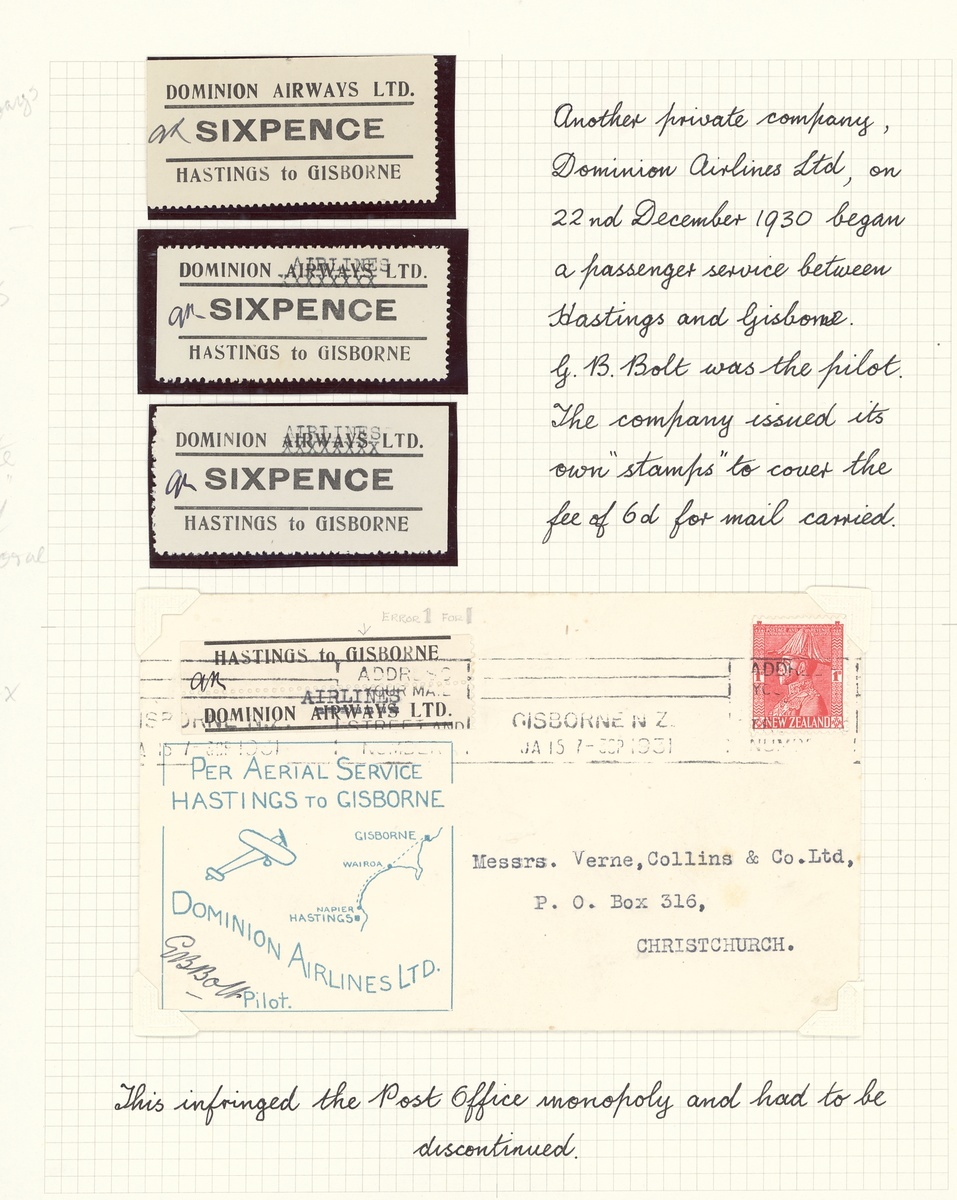 DOMINION AIRWAYS LTD.
SIXPENCE
HASTINGS to GISBORNE
AIRLINES
DOMINION AIRWAYS LTD.
XXXXXXXX
SIXPENCE
HASTINGS to GISBORNE
AIRLINES
DOMINION AIRWAYS LTD.
XXXXXXXX
SIXPENCE
HASTINGS to GISBORNE
Another private company,
Dominion Airlines Ltd, on
22nd December 1930 began
a passenger service between
Hastings and Gisborne.
G. B. Bolt was the pilot.
The company issued its
own "stamps" to cover the
fee of 6d for mail carried.
ERROR 1 FOR
HASTINGS to GISBORNE
AIRLINES
DOMINION AIRWAYS LTD.
ADDRESS
YOUR MAIL
STREET AND
NUMBER
GISBORNE N Z
JA 15 7-30P 1931
NEW ZEALAND
PER AERIAL SERVICE
HASTINGS TO GISBORNE
GISBORNE
WAIROA
NAPIER
HASTINGS
DOMINION AIRLINES LTD.
GBBolt
Pilot.
Messrs. Verne,Collins & Co.Ltd,
P. O. Box 316,
CHRISTCHURCH.
This infringed the Post Office monopoly and had to be
discontinued.